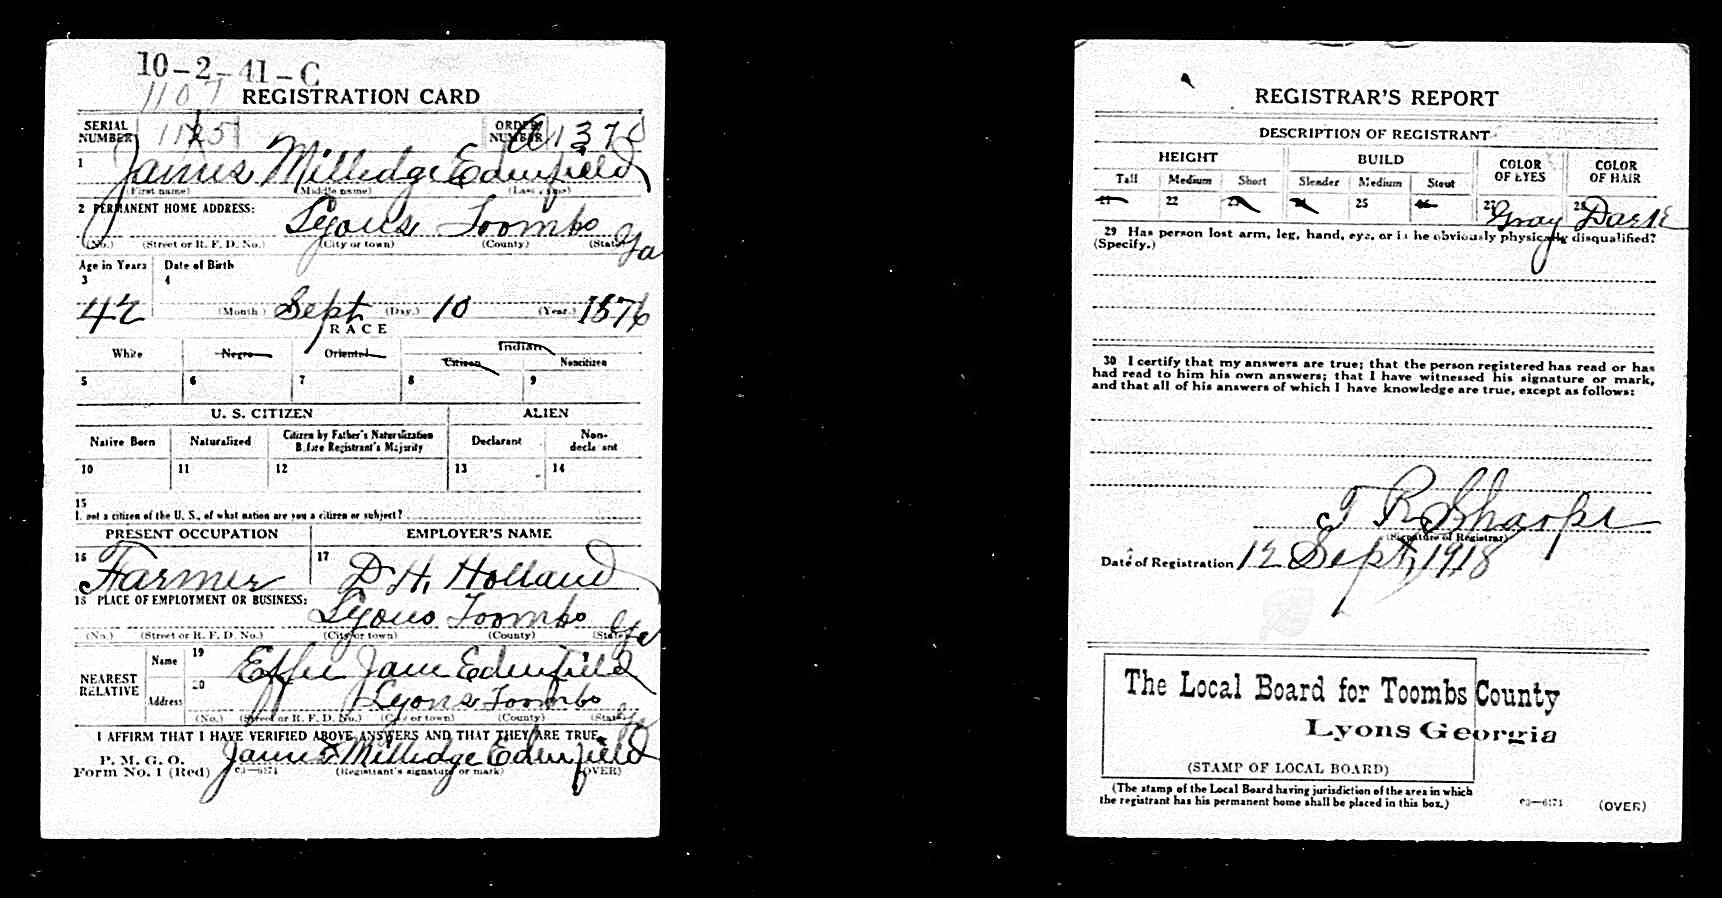 10-2-41-C
1107
REGISTRATION CARD
SERIAL NUMBER 1125 ORDER NUMBER A1376
1 James Milledge Edenfield
(First name) (Middle name) (Last name)
2 PERMANENT HOME ADDRESS: Lyons Toombs Ga
(No.) (Street or R. F. D. No.) (City or town) (County) (State)
Age in Years Date of Birth
3 4
42 (Month) Sept (Day.) 10 (Year.) 1876
RACE
White Negro Oriental Indian
Citizen Noncitizen
5 6 7 8 9
U. S. CITIZEN ALIEN
Native Born Naturalized Citizen by Father's Naturalization Before Registrant's Majority Declarant Non-declarant
10 11 12 13 14
15
If not a citizen of the U. S., of what nation are you a citizen or subject?
PRESENT OCCUPATION EMPLOYER'S NAME
16 Farmer 17 D. H. Holland
18 PLACE OF EMPLOYMENT OR BUSINESS: Lyons Toombs Ga
(No.) (Street or R. F. D. No.) (City or town) (County) (State)
NEAREST RELATIVE Name 19 Effie Jane Edenfield
Address 20 Lyons Toombs Ga
(No.) (Street or R. F. D. No.) (City or town) (County) (State)
I AFFIRM THAT I HAVE VERIFIED ABOVE ANSWERS AND THAT THEY ARE TRUE.
P. M. G. O.
Form No. 1 (Red) 03—6171 James Milledge Edenfield
(Registrant's signature or mark) (OVER)
REGISTRAR'S REPORT
DESCRIPTION OF REGISTRANT
HEIGHT BUILD COLOR OF EYES COLOR OF HAIR
Tall Medium Short Slender Medium Stout
21 22 23 24 25 26 27 Gray 28 Dark
29 Has person lost arm, leg, hand, eye, or is he obviously physically disqualified?
(Specify.)
30 I certify that my answers are true; that the person registered has read or has
had read to him his own answers; that I have witnessed his signature or mark,
and that all of his answers of which I have knowledge are true, except as follows:
J R Sharpe
(Signature of Registrar)
Date of Registration 12 Sept, 1918
The Local Board for Toombs County
Lyons Georgia
(STAMP OF LOCAL BOARD)
(The stamp of the Local Board having jurisdiction of the area in which
the registrant has his permanent home shall be placed in this box.)
03—6171 (OVER)